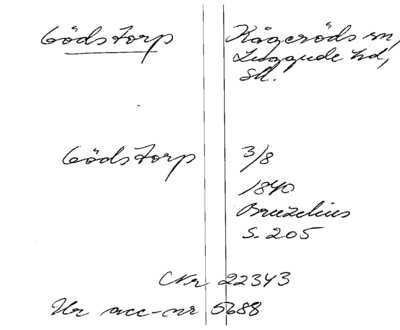 Gödstorp
Kågeröds sn,
Luggude hd,
Sk.
Gödstorp
3/8
1840
Bruzelius
S. 205
Nr 22343
Ur acc-nr 5688